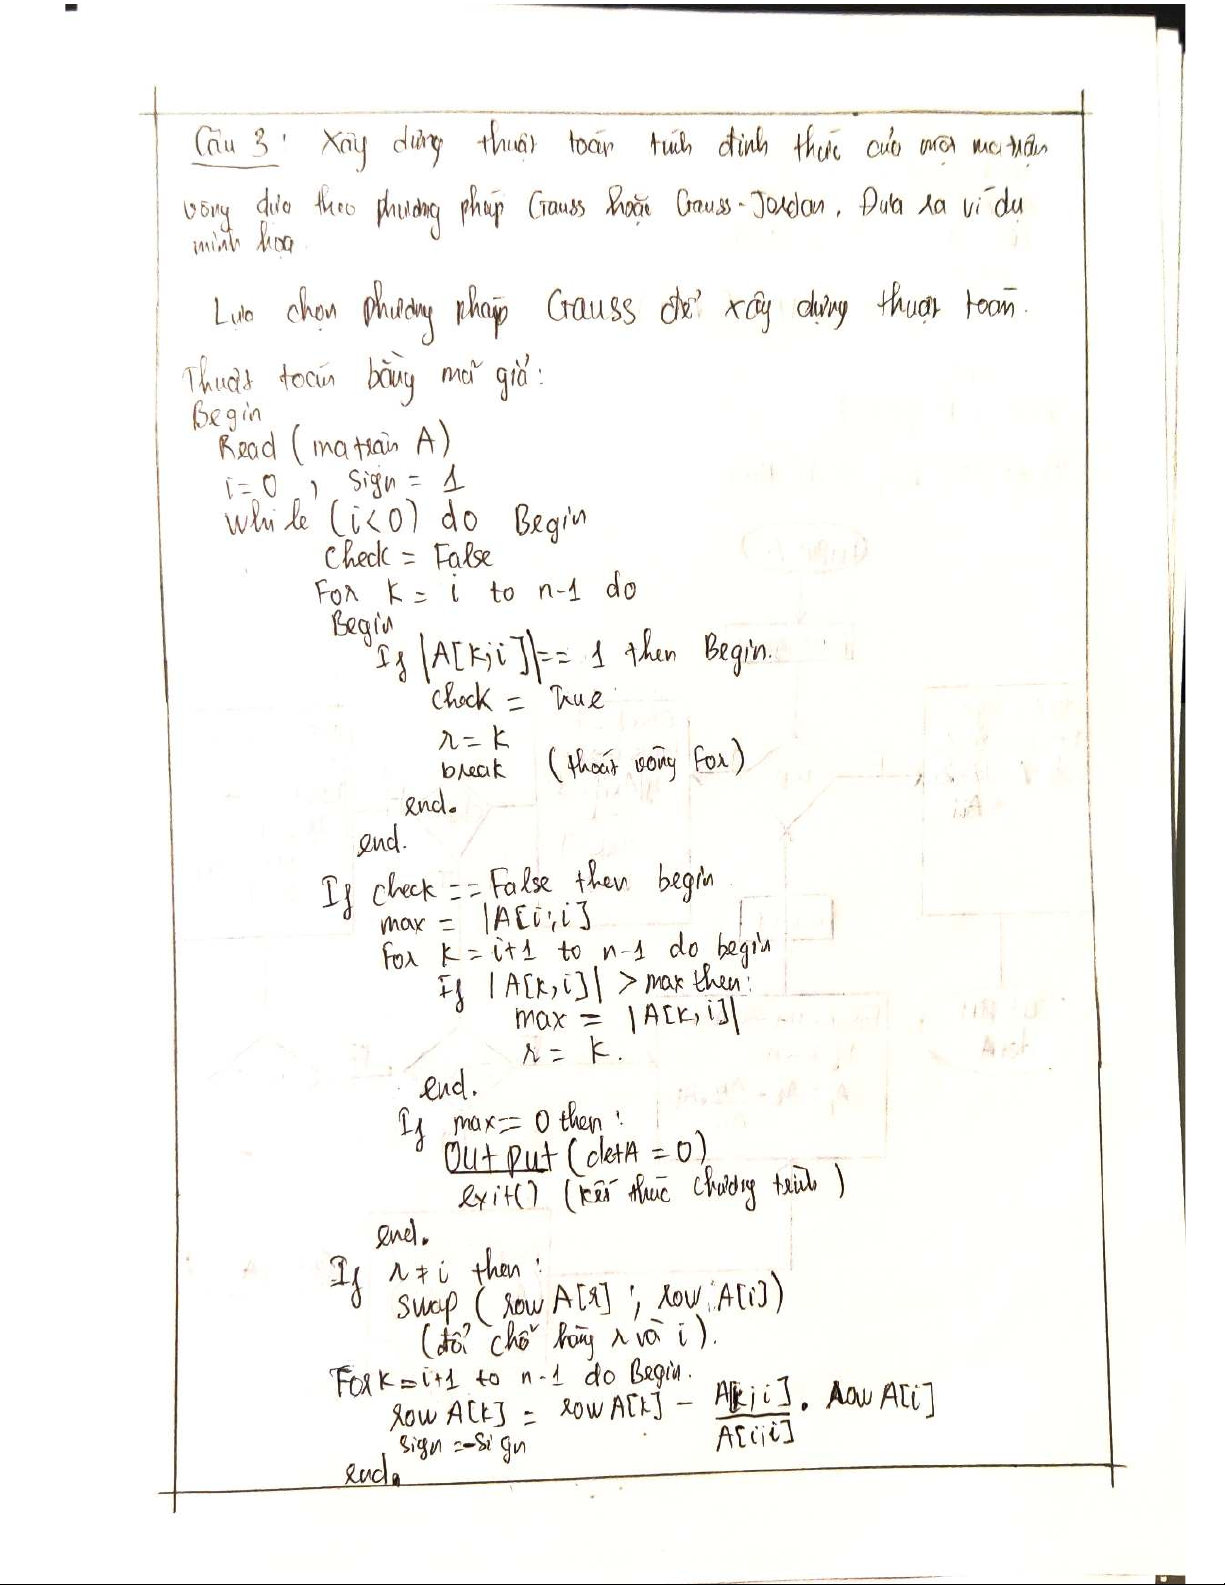 Câu 3: Xây dựng thuật toán tính định thức của một ma trận
vông dựa theo phương pháp Gauss hoặc Gauss-Jordan. Đưa ra ví dụ
minh hoạ
Lựa chọn phương pháp Gauss để xây dựng thuật toán.
Thuật toán bằng mã giả:
Begin
Read (ma trận A)
i=0 , Sign = 1
While (i<0) do Begin
check = False
For k = i to n-1 do
Begin
If |A[k,i]|== 1 then Begin.
check = True
r = k
break (thoát vòng For)
end.
end.
If check == False then begin
max = |A[i,i]
For k = i+1 to n-1 do begin
If |A[k,i]| > max then:
max = |A[k,i]|
r = k.
end.
If max== 0 then:
Output (detA = 0)
exit() (kết thúc chương trình)
end.
If r ≠ i then:
Swap (row A[r] ; row A[i])
(đổi chỗ hàng r và i).
For k=i+1 to n-1 do Begin.
row A[k] = row A[k] - A[k,i] . row A[i]
A[i,i]
sign =-Sign
end.